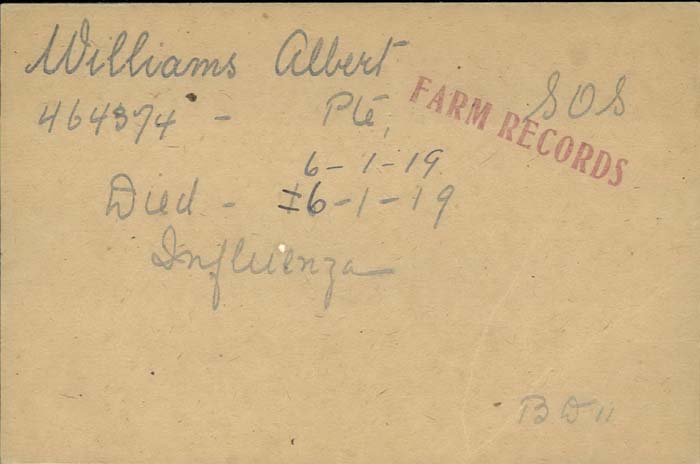 Williams Albert
464374 - Pte, SOS
FARM RECORDS
6-1-19
Died - 16-1-19
Influenza
BD 11